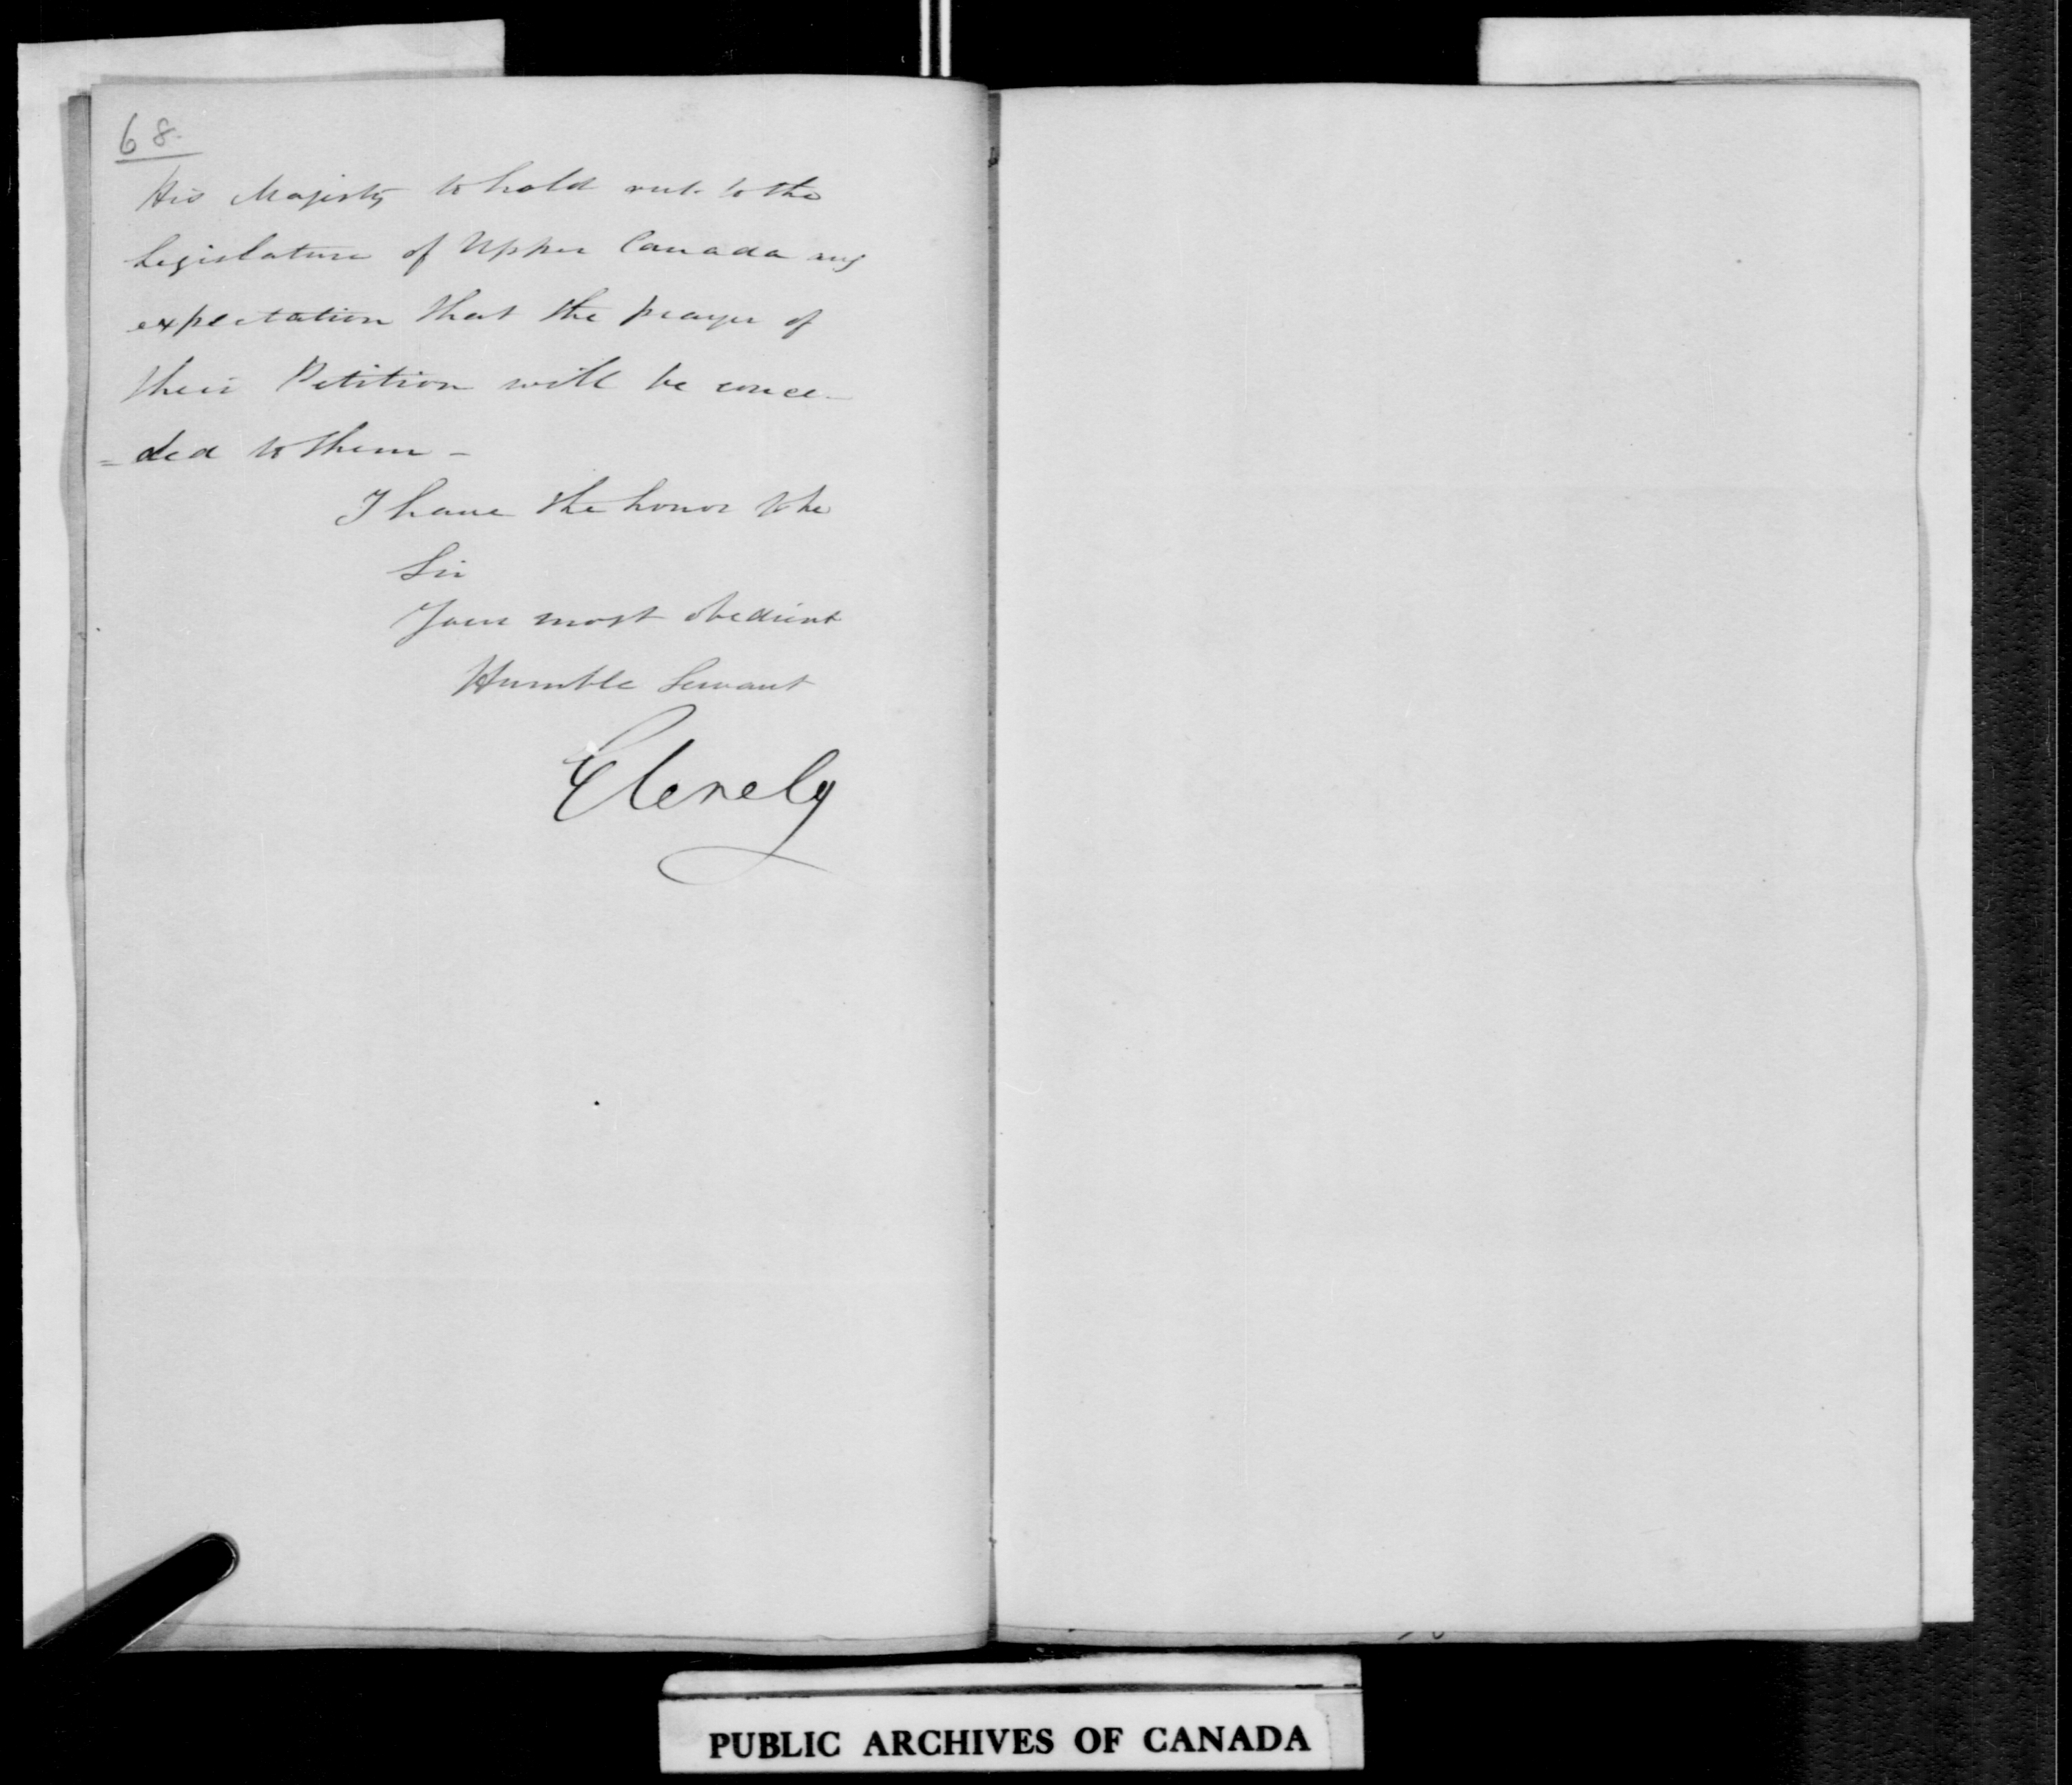 68.
His Majesty to hold out to the
Legislature of Upper Canada any
expectation that the prayer of
their Petition will be conce-
=ded to them -
I have the honor to be
Sir
Your most obedient
Humble Servant
Glenelg
PUBLIC ARCHIVES OF CANADA